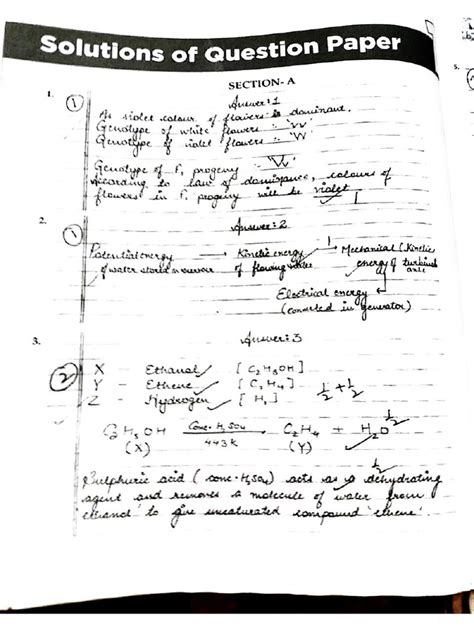 Solutions of Question Paper
SECTION-A
5.
1.
1
Answer:1
As violet colour of flowers is dominant,
Genotype of white flowers :- 'vv'
Genotype of violet flowers :- 'VV'
Genotype of F₁ progeny :- 'Vv'
According to law of dominance, colours of
flowers in F₁ progeny will be violet
1
2.
1
Answer:2
Potential energy → Kinetic energy → Mechanical (Kinetic
of water stored in reservoir of flowing water energy of turbine
Electrical energy
(converted in generator)
3.
Answer:3
2
X - Ethanol [C₂H₅OH]
Y - Ethene [C₂H₄]
Z - Hydrogen [H₂]
½ + ½
C₂H₅OH Conc. H₂SO₄ 443K → C₂H₄ + H₂O
½
(X) (Y)
½
Sulphuric acid (conc. H₂SO₄) acts as a dehydrating
agent and removes a molecule of water from
'ethanol' to give unsaturated compound 'ethene'.